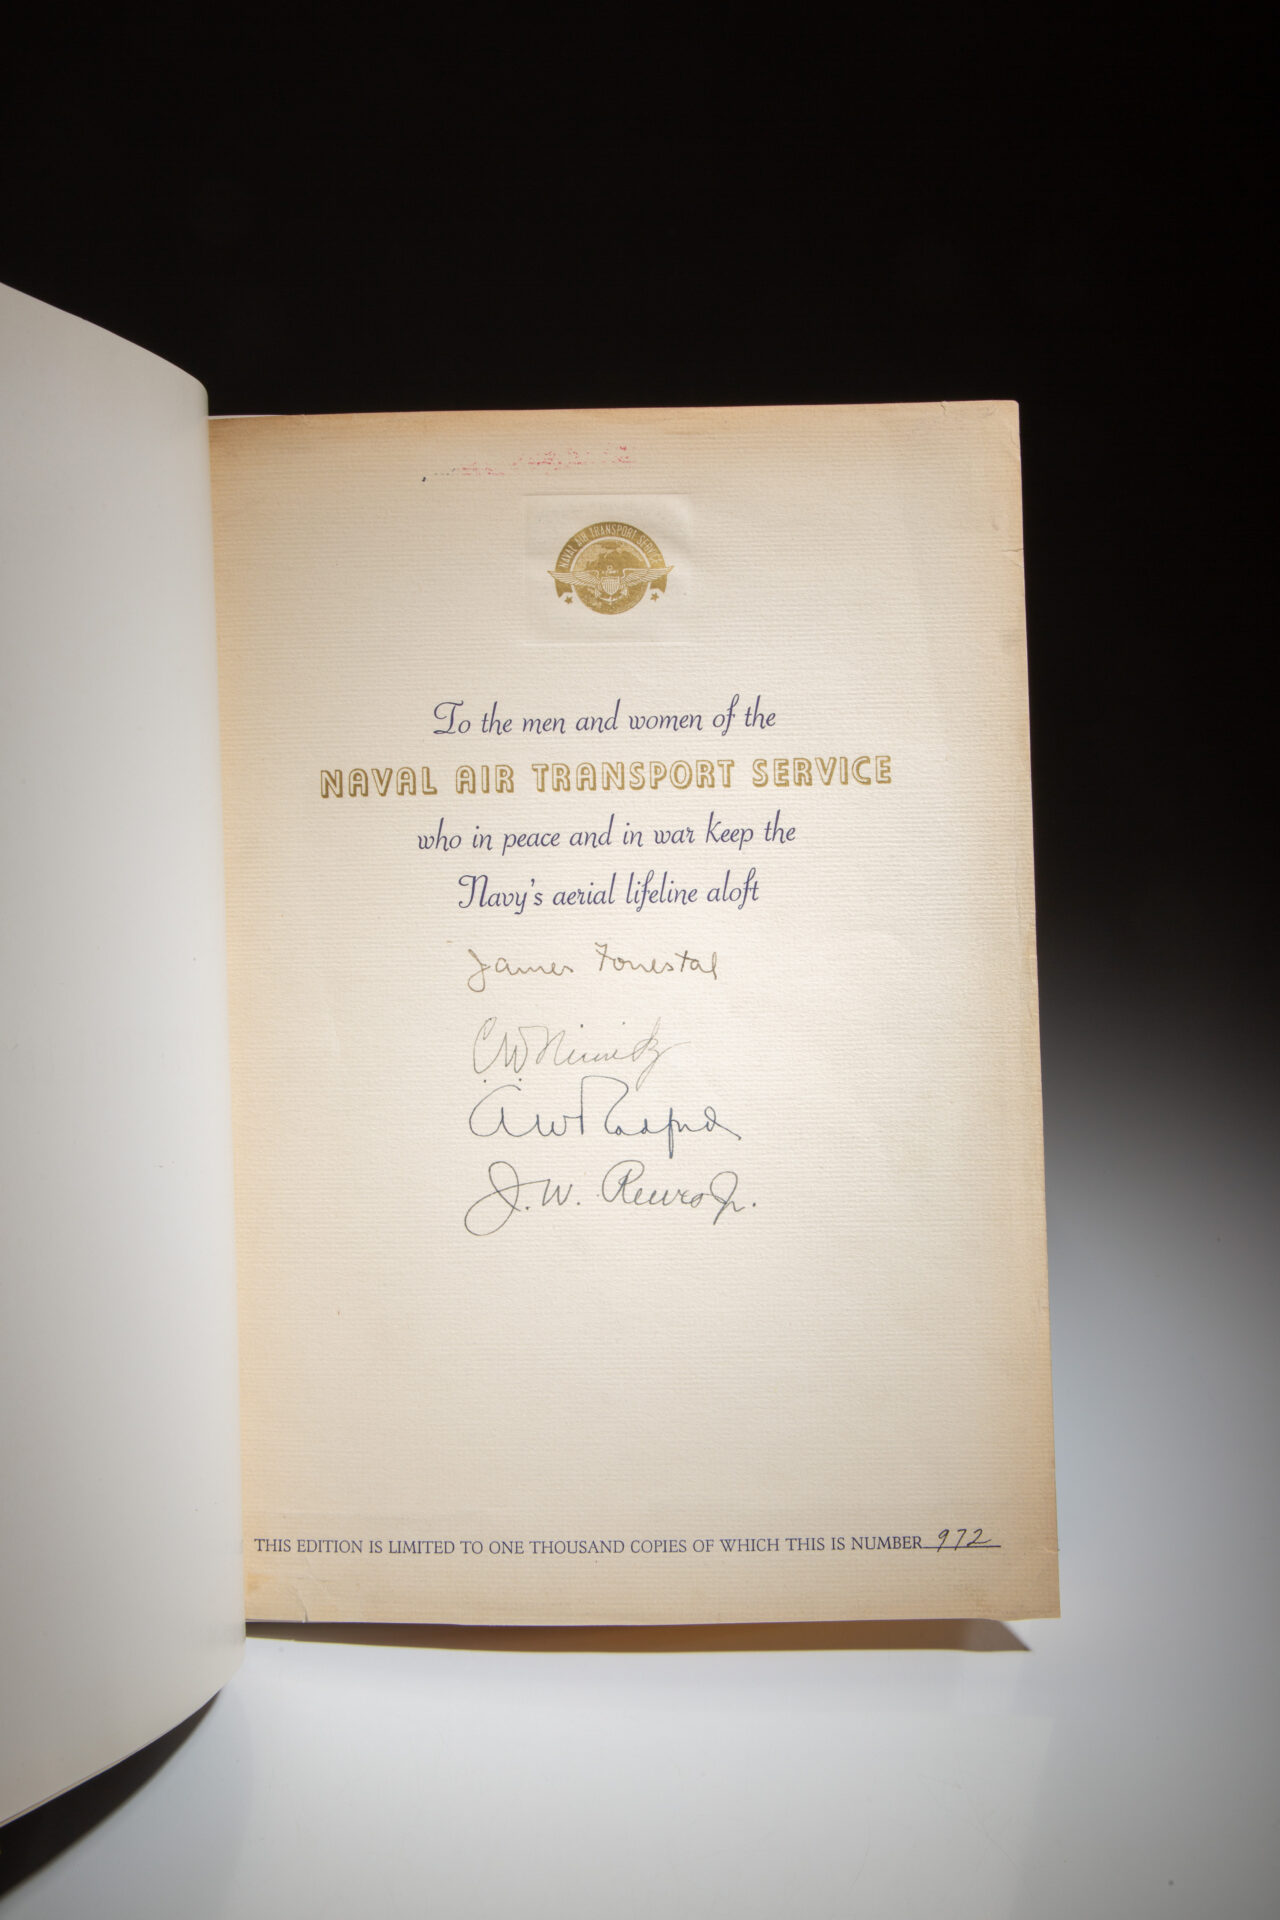 NAVAL AIR TRANSPORT SERVICE
To the men and women of the
NAVAL AIR TRANSPORT SERVICE
who in peace and in war keep the
Navy's aerial lifeline aloft
James Forrestal
C.W. Nimitz
A W Radford
J. W. Reeves Jr.
THIS EDITION IS LIMITED TO ONE THOUSAND COPIES OF WHICH THIS IS NUMBER 972